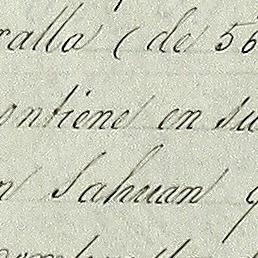 ralla (de 56
ontiene en su
n Sahuan q